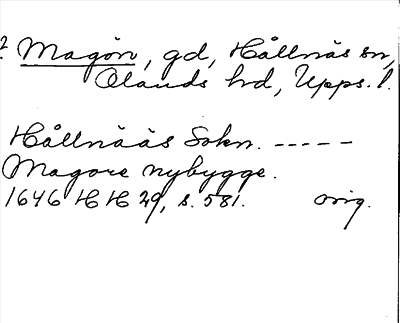 ? Magön, gd, Hållnäs sn,
Olands hd, Upps. l.
Hållnääs Sokn. -----
Magore nybygge.
1646 HH 29, s. 581. orig.